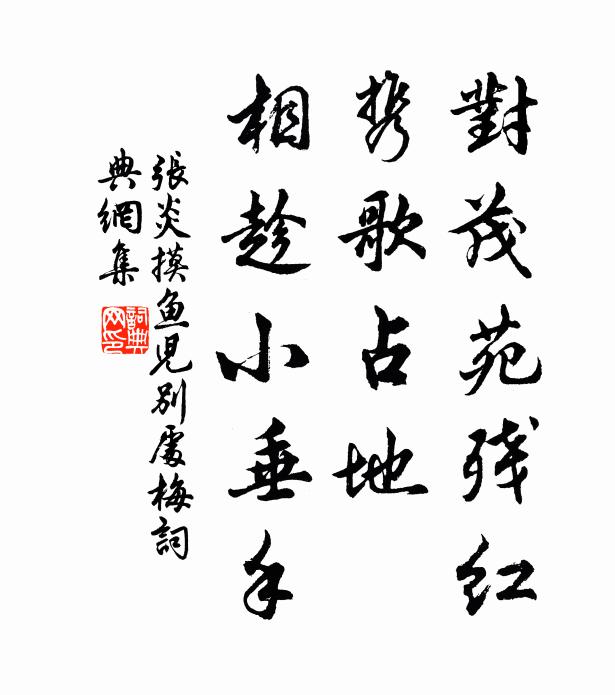 對茂苑残红
携歌占地
相趁小垂手
張炎摸魚児别處梅詞
典網集
詞典网印